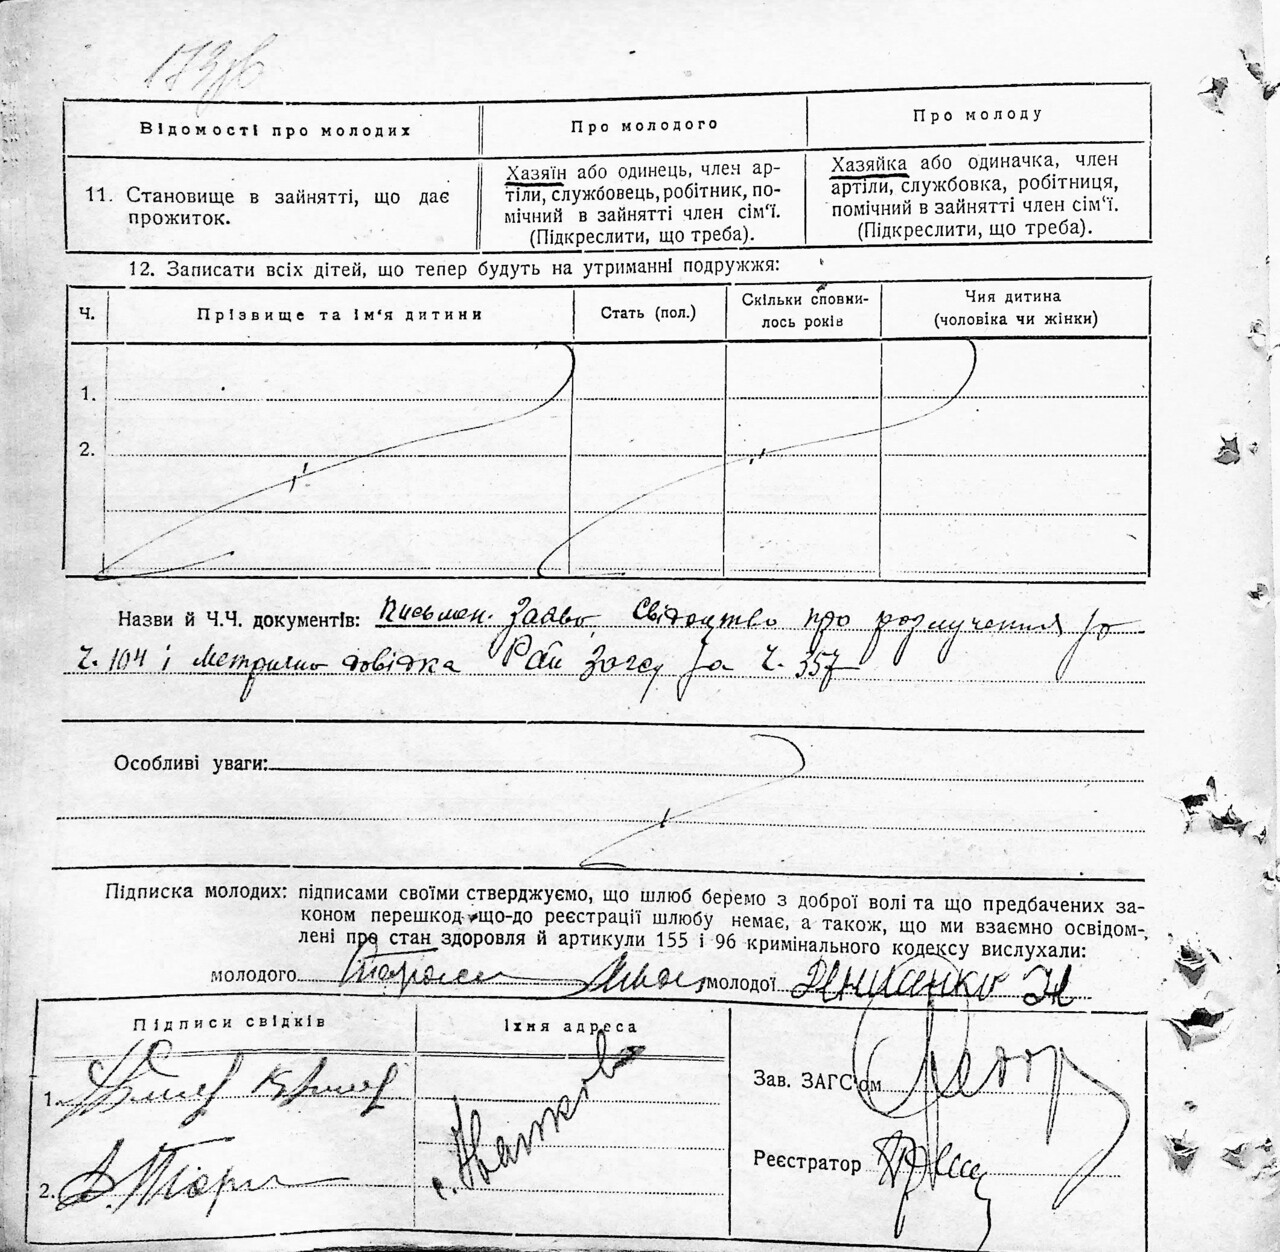 173зв
Відомості про молодих
Про молодого
Про молоду
11. Становище в зайнятті, що дає
прожиток.
Хазяїн або одинець, член ар-
тіли, службовець, робітник, по-
мічний в зайнятті член сім'ї.
(Підкреслити, що треба).
Хазяйка або одиначка, член
артіли, службовка, робітниця,
помічний в зайнятті член сім'ї.
(Підкреслити, що треба).
12. Записати всіх дітей, що тепер будуть на утриманні подружжя:
Ч.
Прізвище та ім'я дитини
Стать (пол.)
Скільки сповни-
лось років
Чия дитина
(чоловіка чи жінки)
1.
2.
Назви й Ч.Ч. документів: Письмен. Заява, Свідоцтво про розлучення за
Ч. 104 і Метрична довідка Рай Загсу за Ч. 357
Особливі уваги:
Підписка молодих: підписами своїми стверджуємо, що шлюб беремо з доброї волі та що предбачених за-
коном перешкод що-до реєстрації шлюбу немає, а також, що ми взаємно освідом-
лені про стан здоровля й артикули 155 і 96 кримінального кодексу вислухали:
молодого молодої
Підписи свідків
Їхня адреса
1.
2.
с. Иванков
Зав. ЗАГС'ом
Реєстратор